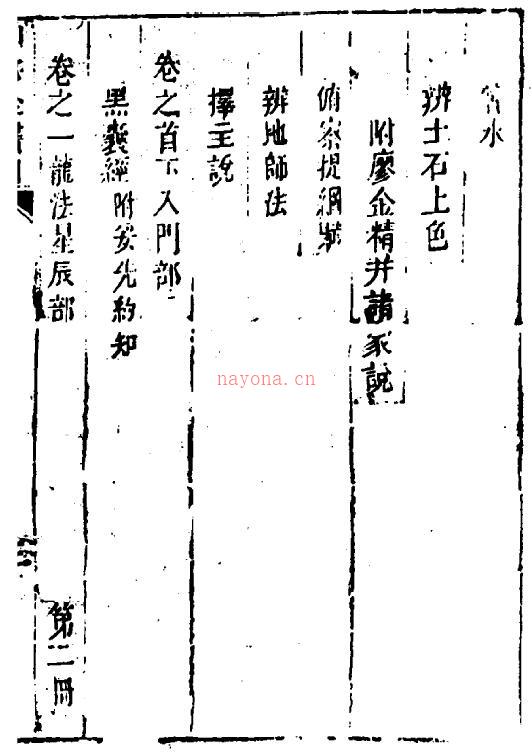 嘗水
辨土石上色
附廖金精并諸家說
俯察提綱
辨地師法
擇主說
卷之首下入門部
黑囊經 附姜先約知
卷之一龍法星辰部
第二冊
nayona.cn